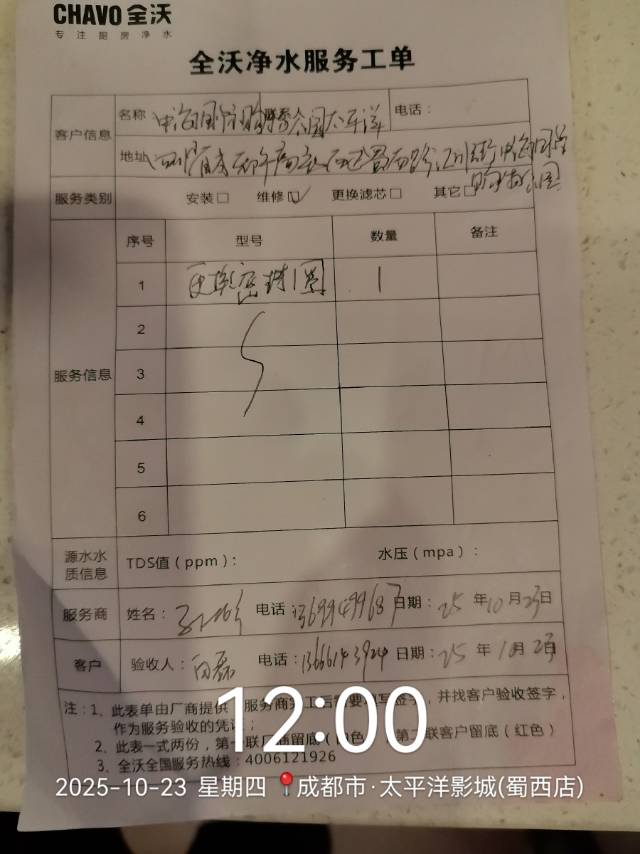 CHAVO 全沃
专注厨房净水
全沃净水服务工单
客户信息 名称 中海国际购 联系人 公园太平洋 电话：
地址 四川省成都市高新区
服务类别 安装☐ 维修☑ 更换滤芯☐ 其它☐
服务信息 序号 型号 数量 备注
1 更换密封圈 1
2
3
4
5
6
源水水质信息 TDS值（ppm）： 水压（mpa）：
服务商 姓名： 电话 13699449687 日期：25 年 10 月 23日
客户 验收人：白磊 电话：13666143924 日期：25 年 10月 23日
注：1、此表单由厂商提供 服务商完工后需要填写签字，并找客户验收签字，
作为服务验收的凭证；
2、此表一式两份，第一联厂商留底（白色），第二联客户留底（红色）
3、全沃全国服务热线：4006121926
12:00
2025-10-23 星期四 成都市·太平洋影城(蜀西店)